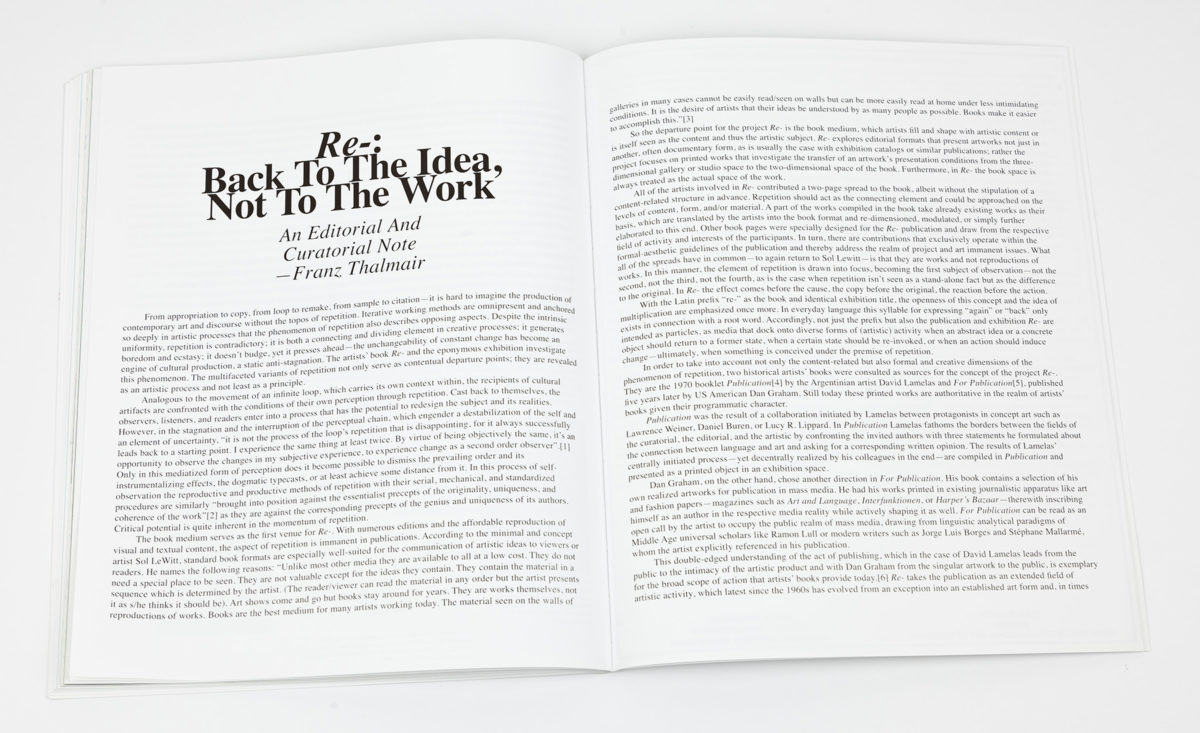 Re-:
Back To The Idea,
Not To The Work
An Editorial And
Curatorial Note
—Franz Thalmair
From appropriation to copy, from loop to remake, from sample to citation—it is hard to imagine the production of
contemporary art and discourse without the topos of repetition. Iterative working methods are omnipresent and anchored
so deeply in artistic processes that the phenomenon of repetition also describes opposing aspects. Despite the intrinsic
uniformity, repetition is contradictory; it is both a connecting and dividing element in creative processes; it generates
boredom and ecstasy; it doesn't budge, yet it presses ahead—the unchangeability of constant change has become an
engine of cultural production, a static anti-stagnation. The artists' book Re- and the eponymous exhibition investigate
this phenomenon. The multifaceted variants of repetition not only serve as contentual departure points; they are revealed
as an artistic process and not least as a principle.
Analogous to the movement of an infinite loop, which carries its own context within, the recipients of cultural
artifacts are confronted with the conditions of their own perception through repetition. Cast back to themselves, the
observers, listeners, and readers enter into a process that has the potential to redesign the subject and its realities.
However, in the stagnation and the interruption of the perceptual chain, which engender a destabilization of the self and
an element of uncertainty, "it is not the process of the loop's repetition that is disappointing, for it always successfully
leads back to a starting point. I experience the same thing at least twice. By virtue of being objectively the same, it's an
opportunity to observe the changes in my subjective experience, to experience change as a second order observer".[1]
Only in this mediatized form of perception does it become possible to dismiss the prevailing order and its
instrumentalizing effects, the dogmatic typecasts, or at least achieve some distance from it. In this process of self-
observation the reproductive and productive methods of repetition with their serial, mechanical, and standardized
procedures are similarly "brought into position against the essentialist precepts of the originality, uniqueness, and
coherence of the work"[2] as they are against the corresponding precepts of the genius and uniqueness of its authors.
Critical potential is quite inherent in the momentum of repetition.
The book medium serves as the first venue for Re-. With numerous editions and the affordable reproduction of
visual and textual content, the aspect of repetition is immanent in publications. According to the minimal and concept
artist Sol LeWitt, standard book formats are especially well-suited for the communication of artistic ideas to viewers or
readers. He names the following reasons: "Unlike most other media they are available to all at a low cost. They do not
need a special place to be seen. They are not valuable except for the ideas they contain. They contain the material in a
sequence which is determined by the artist. (The reader/viewer can read the material in any order but the artist presents
it as s/he thinks it should be). Art shows come and go but books stay around for years. They are works themselves, not
reproductions of works. Books are the best medium for many artists working today. The material seen on the walls of
galleries in many cases cannot be easily read/seen on walls but can be more easily read at home under less intimidating
conditions. It is the desire of artists that their ideas be understood by as many people as possible. Books make it easier
to accomplish this."[3]
So the departure point for the project Re- is the book medium, which artists fill and shape with artistic content or
is itself seen as the content and thus the artistic subject. Re- explores editorial formats that present artworks not just in
another, often documentary form, as is usually the case with exhibition catalogs or similar publications; rather the
project focuses on printed works that investigate the transfer of an artwork's presentation conditions from the three-
dimensional gallery or studio space to the two-dimensional space of the book. Furthermore, in Re- the book space is
always treated as the actual space of the work.
All of the artists involved in Re- contributed a two-page spread to the book, albeit without the stipulation of a
content-related structure in advance. Repetition should act as the connecting element and could be approached on the
levels of content, form, and/or material. A part of the works compiled in the book take already existing works as their
basis, which are translated by the artists into the book format and re-dimensioned, modulated, or simply further
elaborated to this end. Other book pages were specially designed for the Re- publication and draw from the respective
field of activity and interests of the participants. In turn, there are contributions that exclusively operate within the
formal-aesthetic guidelines of the publication and thereby address the realm of project and art immanent issues. What
all of the spreads have in common—to again return to Sol Lewitt—is that they are works and not reproductions of
works. In this manner, the element of repetition is drawn into focus, becoming the first subject of observation—not the
second, not the third, not the fourth, as is the case when repetition isn't seen as a stand-alone fact but as the difference
to the original. In Re- the effect comes before the cause, the copy before the original, the reaction before the action.
With the Latin prefix "re-" as the book and identical exhibition title, the openness of this concept and the idea of
multiplication are emphasized once more. In everyday language this syllable for expressing "again" or "back" only
exists in connection with a root word. Accordingly, not just the prefix but also the publication and exhibition Re- are
intended as particles, as media that dock onto diverse forms of (artistic) activity when an abstract idea or a concrete
object should return to a former state, when a certain state should be re-invoked, or when an action should induce
change—ultimately, when something is conceived under the premise of repetition.
In order to take into account not only the content-related but also formal and creative dimensions of the
phenomenon of repetition, two historical artists' books were consulted as sources for the concept of the project Re-.
They are the 1970 booklet Publication[4] by the Argentinian artist David Lamelas and For Publication[5], published
five years later by US American Dan Graham. Still today these printed works are authoritative in the realm of artists'
books given their programmatic character.
Publication was the result of a collaboration initiated by Lamelas between protagonists in concept art such as
Lawrence Weiner, Daniel Buren, or Lucy R. Lippard. In Publication Lamelas fathoms the borders between the fields of
the curatorial, the editorial, and the artistic by confronting the invited authors with three statements he formulated about
the connection between language and art and asking for a corresponding written opinion. The results of Lamelas'
centrally initiated process—yet decentrally realized by his colleagues in the end—are compiled in Publication and
presented as a printed object in an exhibition space.
Dan Graham, on the other hand, chose another direction in For Publication. His book contains a selection of his
own realized artworks for publication in mass media. He had his works printed in existing journalistic apparatus like art
and fashion papers—magazines such as Art and Language, Interfunktionen, or Harper's Bazaar—therewith inscribing
himself as an author in the respective media reality while actively shaping it as well. For Publication can be read as an
open call by the artist to occupy the public realm of mass media, drawing from linguistic analytical paradigms of
Middle Age universal scholars like Ramon Lull or modern writers such as Jorge Luis Borges and Stéphane Mallarmé,
whom the artist explicitly referenced in his publication.
This double-edged understanding of the act of publishing, which in the case of David Lamelas leads from the
public to the intimacy of the artistic product and with Dan Graham from the singular artwork to the public, is exemplary
for the broad scope of action that artists' books provide today.[6] Re- takes the publication as an extended field of
artistic activity, which latest since the 1960s has evolved from an exception into an established art form and, in times